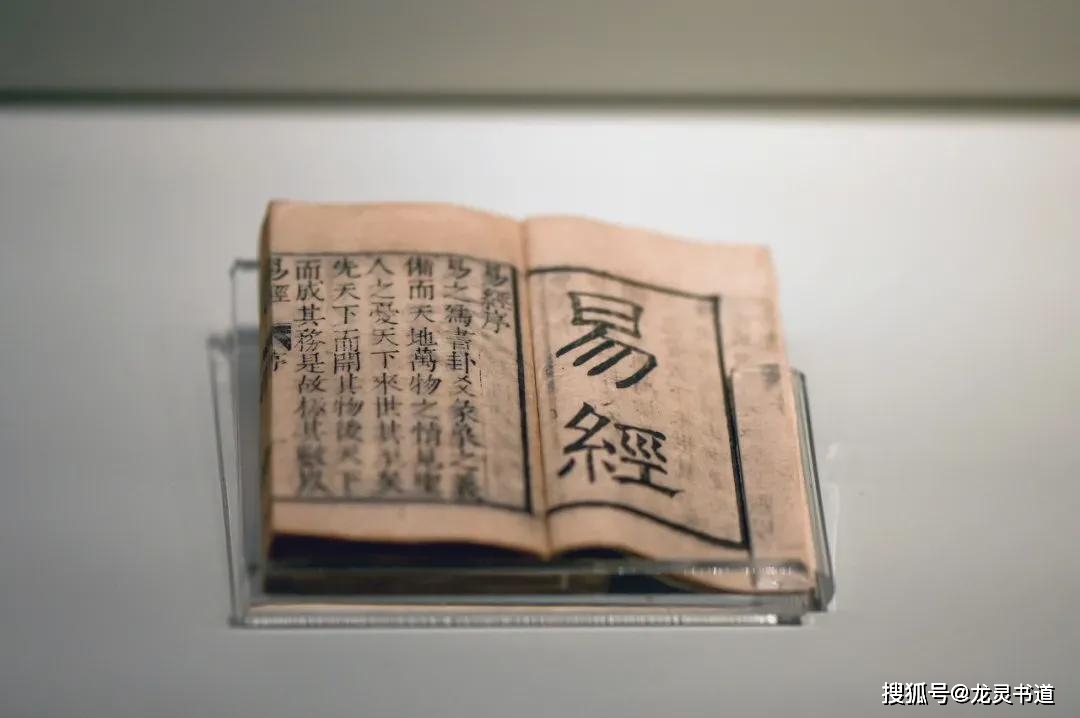 易經
易經序
易之爲書卦爻彖象之義
備而天地萬物之情見聖
人之憂天下來世其至矣
先天下而開其物後天下
而成其務是故極其數以
易經
序
搜狐号@龙灵书道